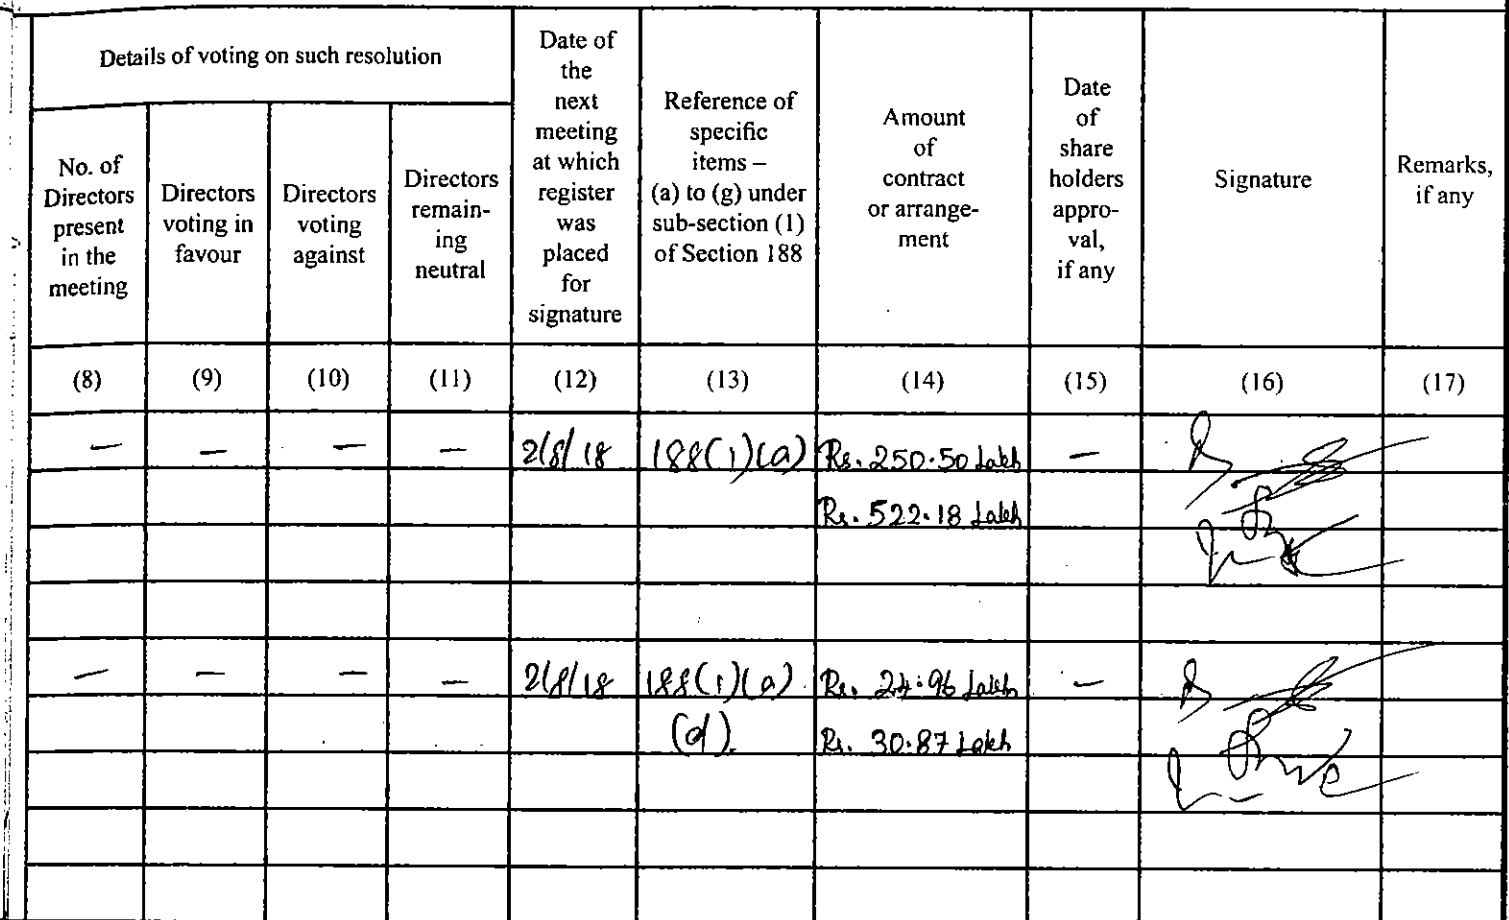 Details of voting on such resolution
No. of
Directors
present
in the
meeting
Directors
voting in
favour
Directors
voting
against
Directors
remain-
ing
neutral
Date of
the
next
meeting
at which
register
was
placed
for
signature
Reference of
specific
items –
(a) to (g) under
sub-section (1)
of Section 188
Amount
of
contract
or arrange-
ment
Date
of
share
holders
appro-
val,
if any
Signature
Remarks,
if any
(8) (9) (10) (11) (12) (13) (14) (15) (16) (17)
— — — — 2/8/18 188(1)(a) Rs. 250.50 Lakh —
Rs. 522.18 Lakh
— — — — 2/8/18 188(1)(a) Rs. 24.96 Lakh —
(d). Rs. 30.87 Lakh